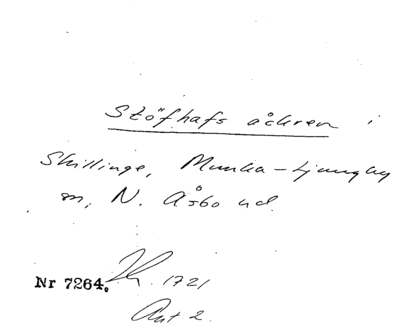 Stöfhafs åckren i
Skillinge, Munka-Ljungby
sn, N. Åsbo hd.
Nr 7264. 1721
Akt 2.